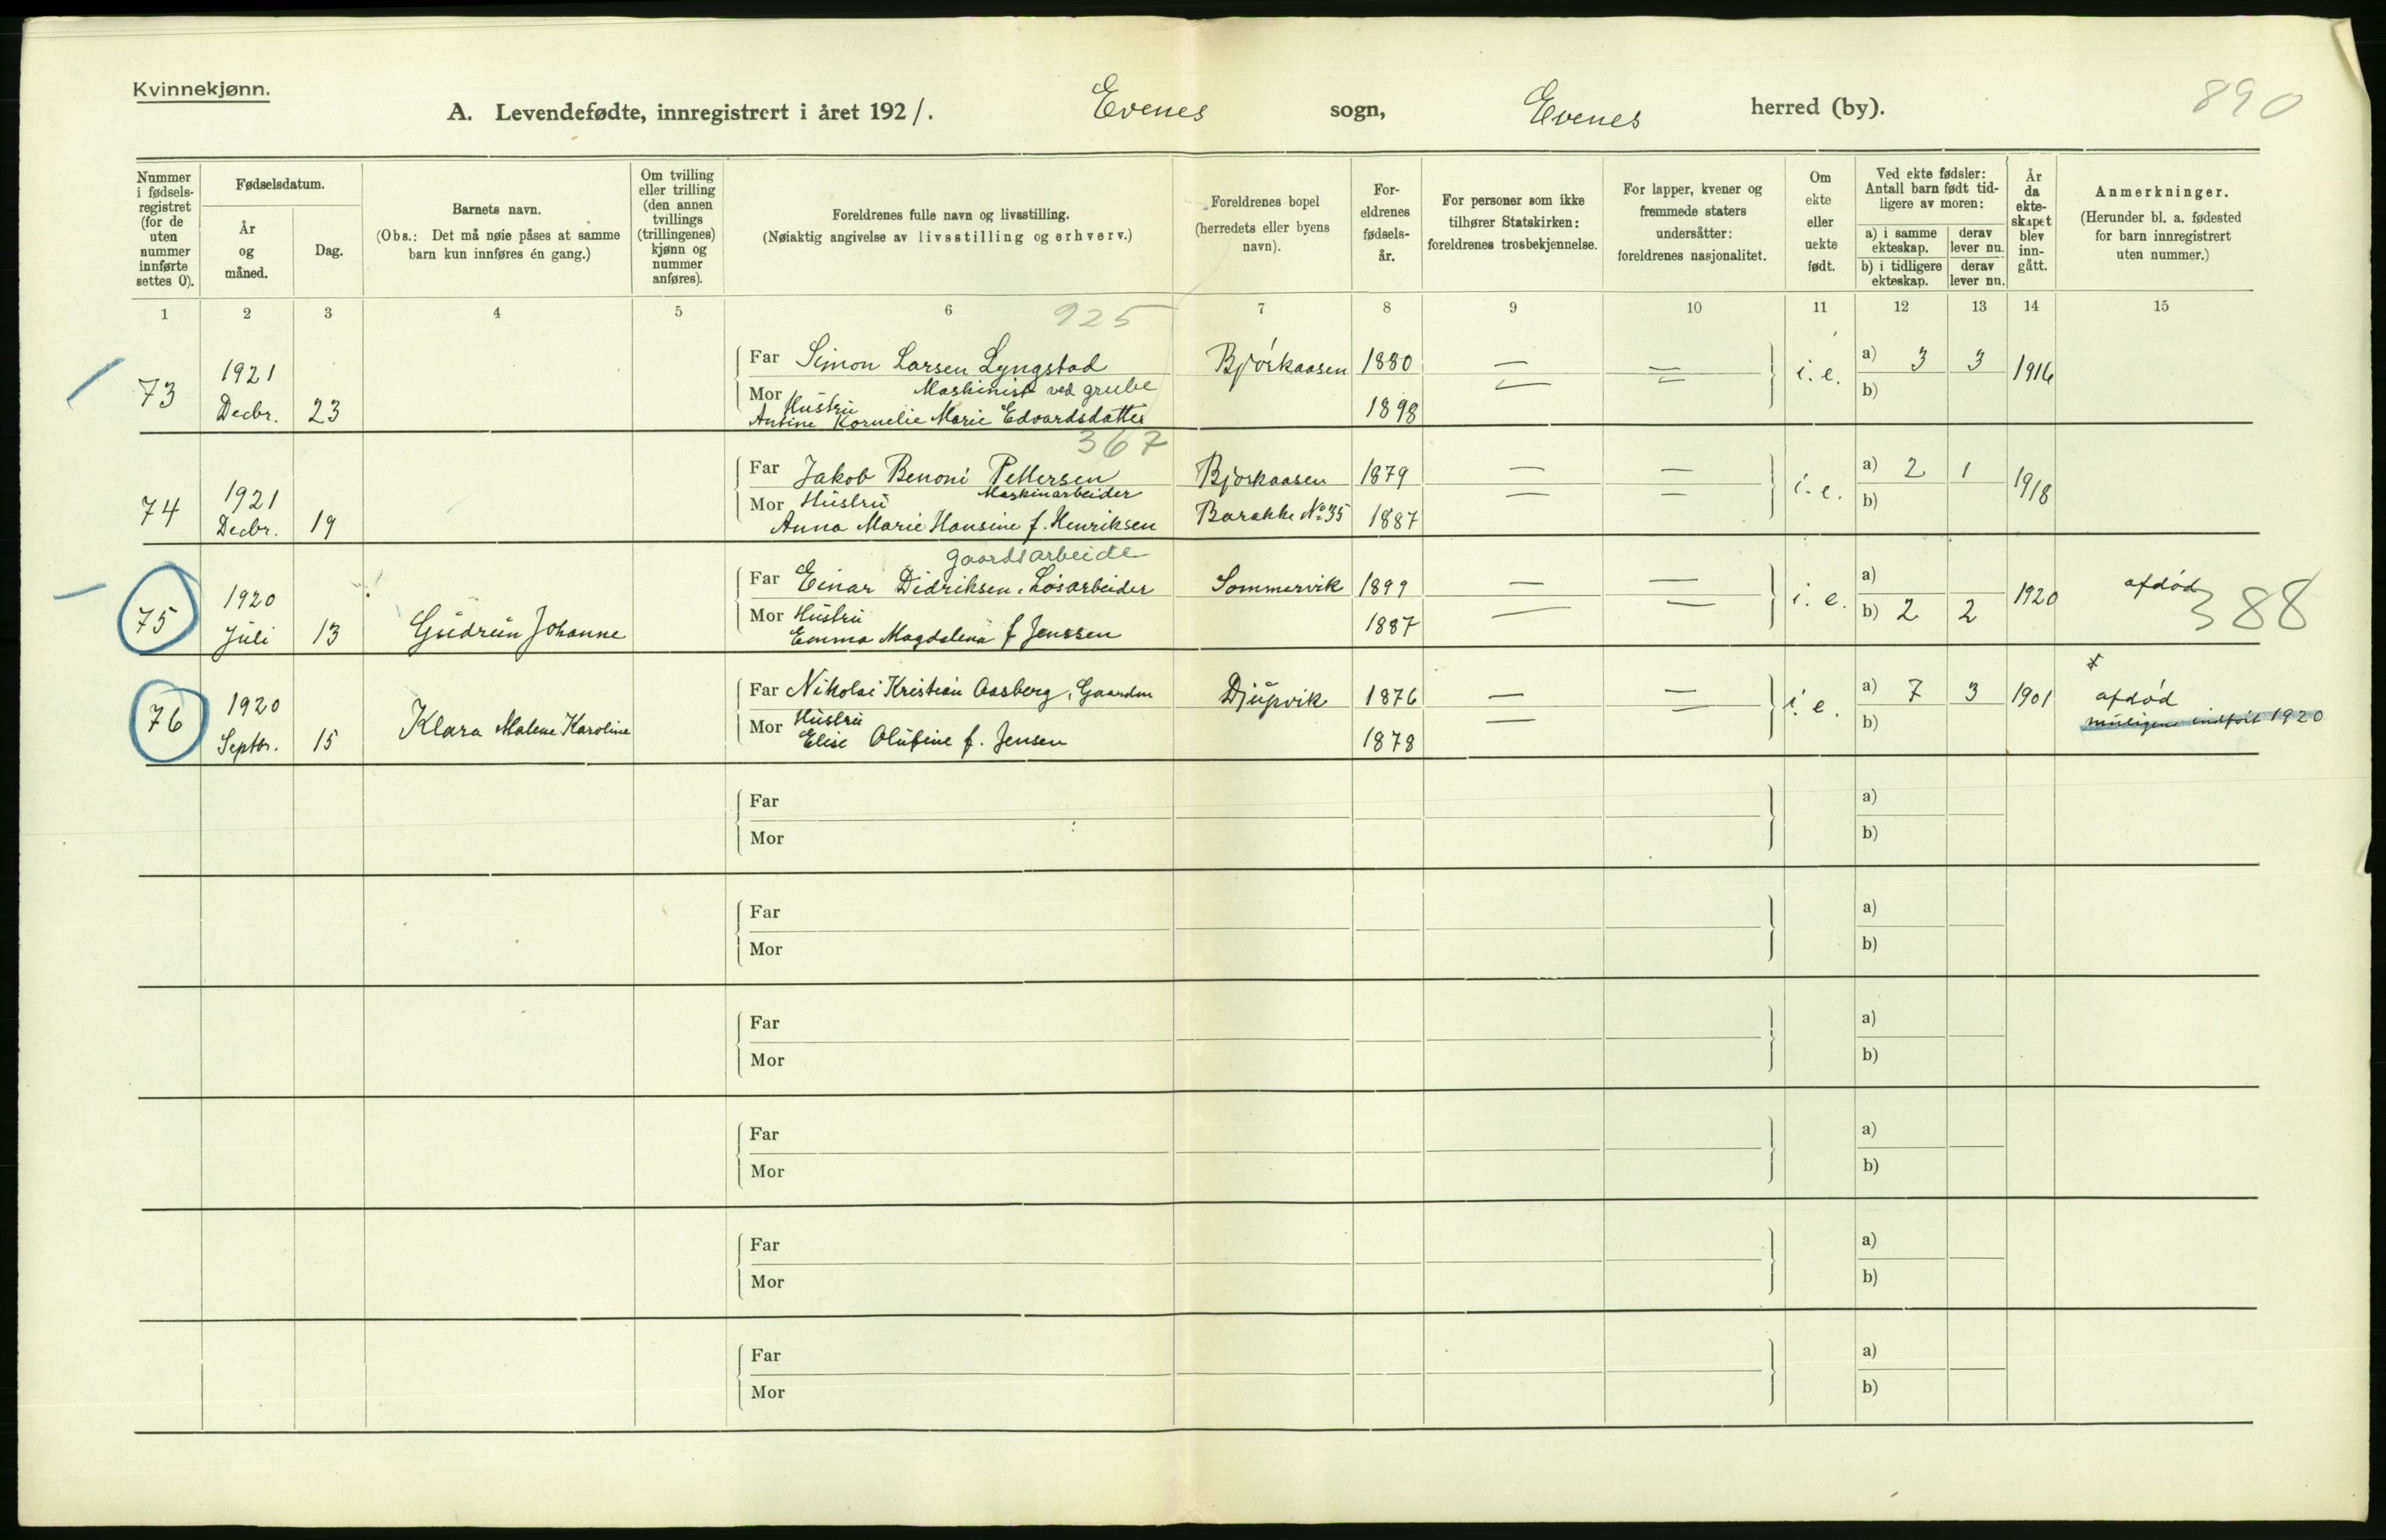 Kvinnekjønn.
A. Levendefødte, innregistrert i året 1921. Evenes sogn, Evenes herred (by).
890
Nummer i fødsels-registret (for de uten nummer innførte settes 0).
Fødselsdatum.
År og måned.
Dag.
Barnets navn.
(Obs.: Det må nøie påses at samme barn kun innføres én gang.)
Om tvilling eller trilling (den annen tvillings (trillingenes) kjønn og nummer anføres).
Foreldrenes fulle navn og livsstilling.
(Nøiaktig angivelse av livsstilling og erhverv.)
Foreldrenes bopel (herredets eller byens navn).
For-eldrenes fødsels-år.
For personer som ikke tilhører Statskirken: foreldrenes trosbekjennelse.
For lapper, kvener og fremmede staters undersåtter: foreldrenes nasjonalitet.
Om ekte eller uekte født.
Ved ekte fødsler: Antall barn født tid-ligere av moren:
a) i samme ekteskap.
derav lever nu.
b) i tidligere ekteskap.
derav lever nu.
År da ekte-skapet blev inn-gått.
Anmerkninger.
(Herunder bl. a. fødested for barn innregistrert uten nummer.)
1 2 3 4 5 6 7 8 9 10 11 12 13 14 15
925
73 1921 Decbr. 23
Far Simon Larsen Lyngstad Bjørkaasen 1880 — — i. e. a) 3 3 1916
Maskinist ved grube
Mor Hustru — — b)
Antine Kornelie Marie Edvardsdatter 1898
367
74 1921 Decbr. 19
Far Jakob Benoni Pettersen Bjørkaasen 1879 — — i. e. a) 2 1 1918
Maskinarbeider
Mor Hustru — — b)
Anna Marie Hansine f. Henriksen Barakke No 35 1887
gaardsarbeide
75 1920 Juli 13 Gudrun Johanne
Far Einar Didriksen, Løsarbeider Sommervik 1899 — — i. e. a) 1920 afdød
Mor Hustru — — b) 2 2 388
Emma Magdalena f Jenssen 1887
76 1920 Septbr. 15 Klara Malene Karoline
Far Nikolai Kristian Aasberg, Gaardm Djupvik 1876 — — i. e. a) 7 3 1901 afdød
Mor Hustru — — b) muligens indført 1920
Elise Olufine f. Jensen 1878
Far a)
Mor b)
Far a)
Mor b)
Far a)
Mor b)
Far a)
Mor b)
Far a)
Mor b)
Far a)
Mor b)